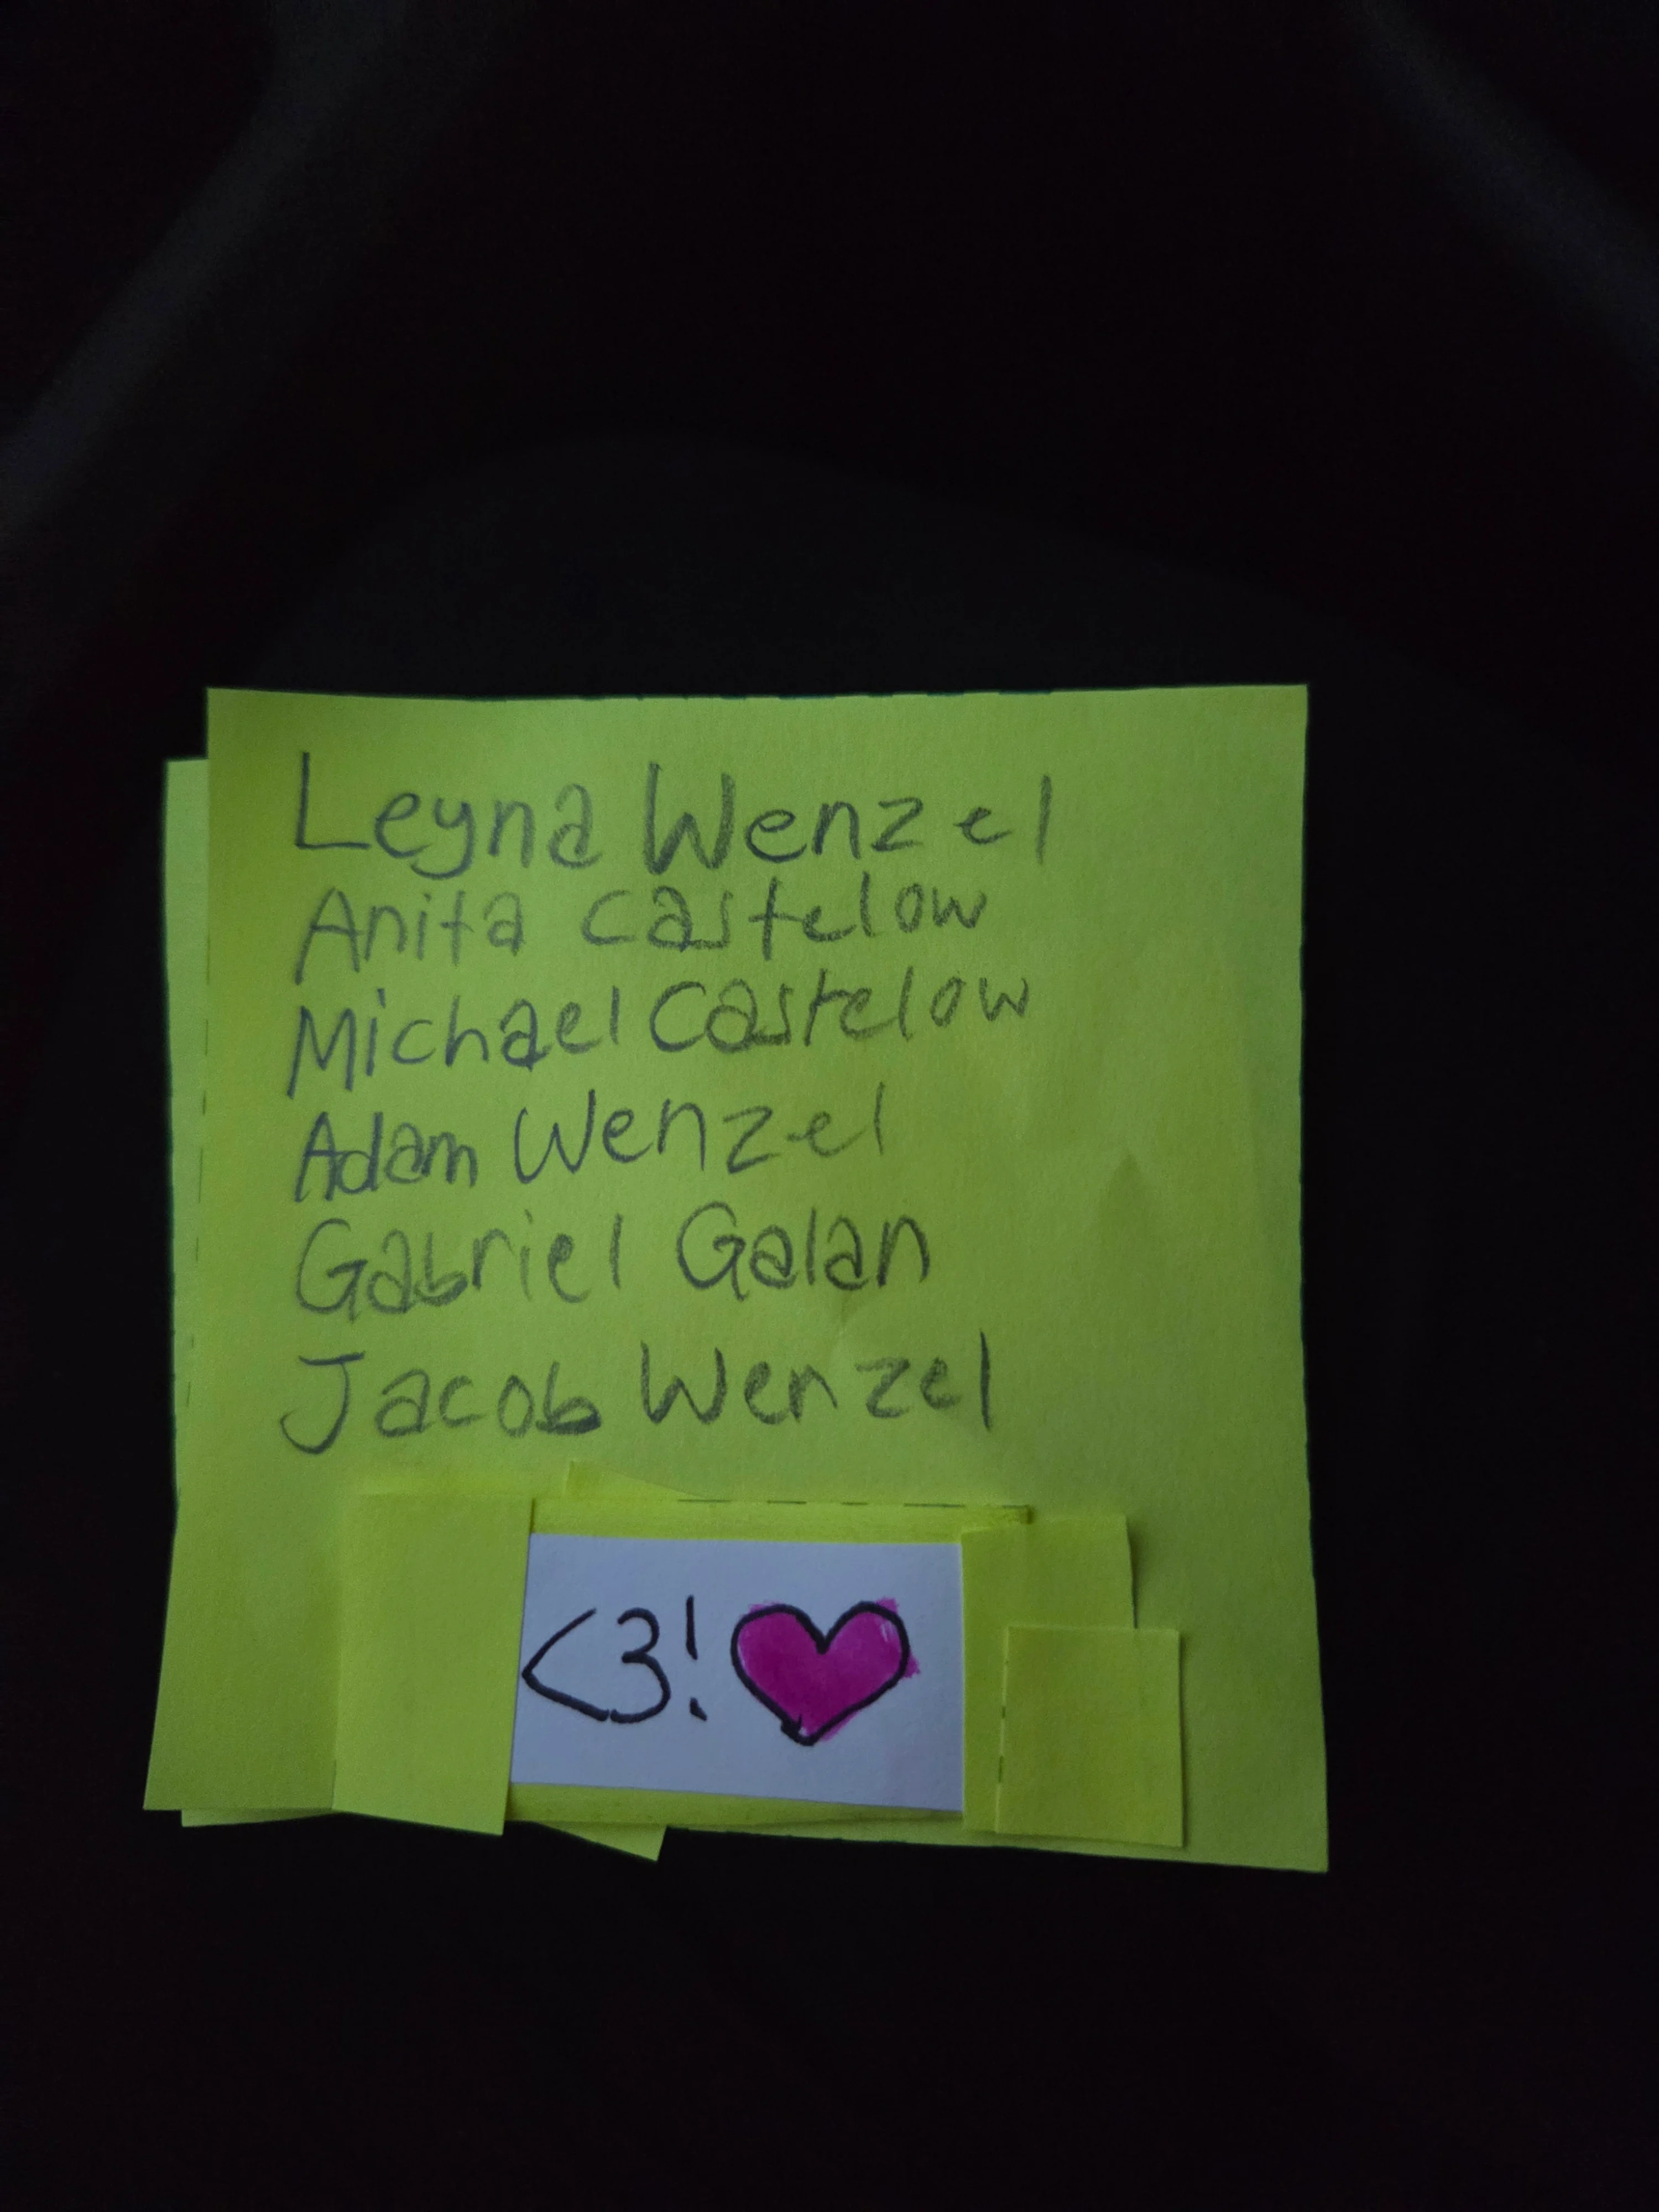 Leyna Wenzel
Anita Castelow
Michael Castelow
Adam Wenzel
Gabriel Galan
Jacob Wenzel
<3!